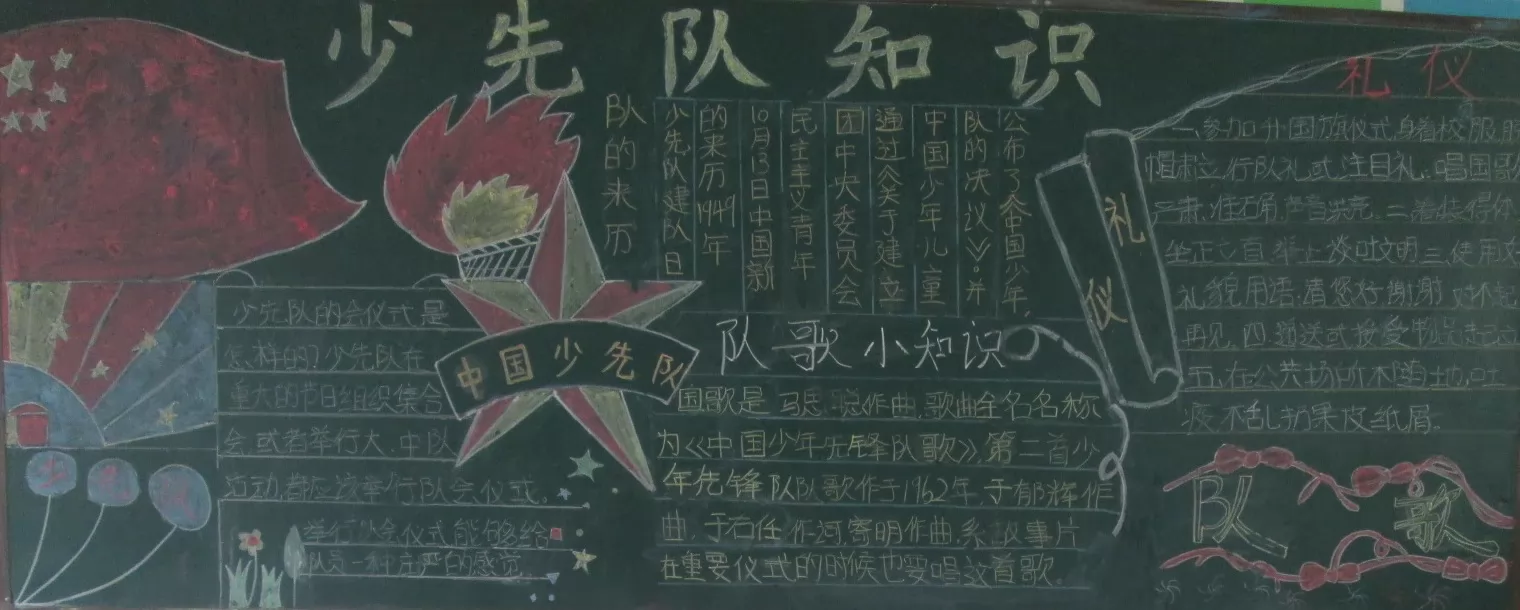 少先队知识
队的来历
少先队建队日
的来历1949年
10月13日中国新
民主主义青年
团中央委员会
通过《关于建立
中国少年儿童
队的决议》。并
公布了《中国少年
少先队的会仪式是
怎样的?少先队在
重大的节日组织集合
会,或者举行大、中队
活动,都应该举行队会仪式。
举行队会仪式能够给
队员一种庄严的感觉
中国少先队
队歌小知识
国歌是马思聪作曲,歌曲全名名称
为《中国少年先锋队歌》,第二首少
年先锋队队歌作于1962年,于郁辉作
曲,于右任作词寄明作曲,系故事片
在重要仪式的时候也要唱这首歌。
礼仪
礼仪
一、参加升国旗仪式,身着校服,
帽肃立,行队礼或注目礼:唱国歌
严肃,准确,声音洪亮.二、着装得体
坐正立直,举止文明三、使用文
礼貌用语:请您好谢谢对不起
再见,四、递送或接受物品起立
五、在公共场所不随地吐
痰,不乱扔果皮纸屑。
少先队
队歌